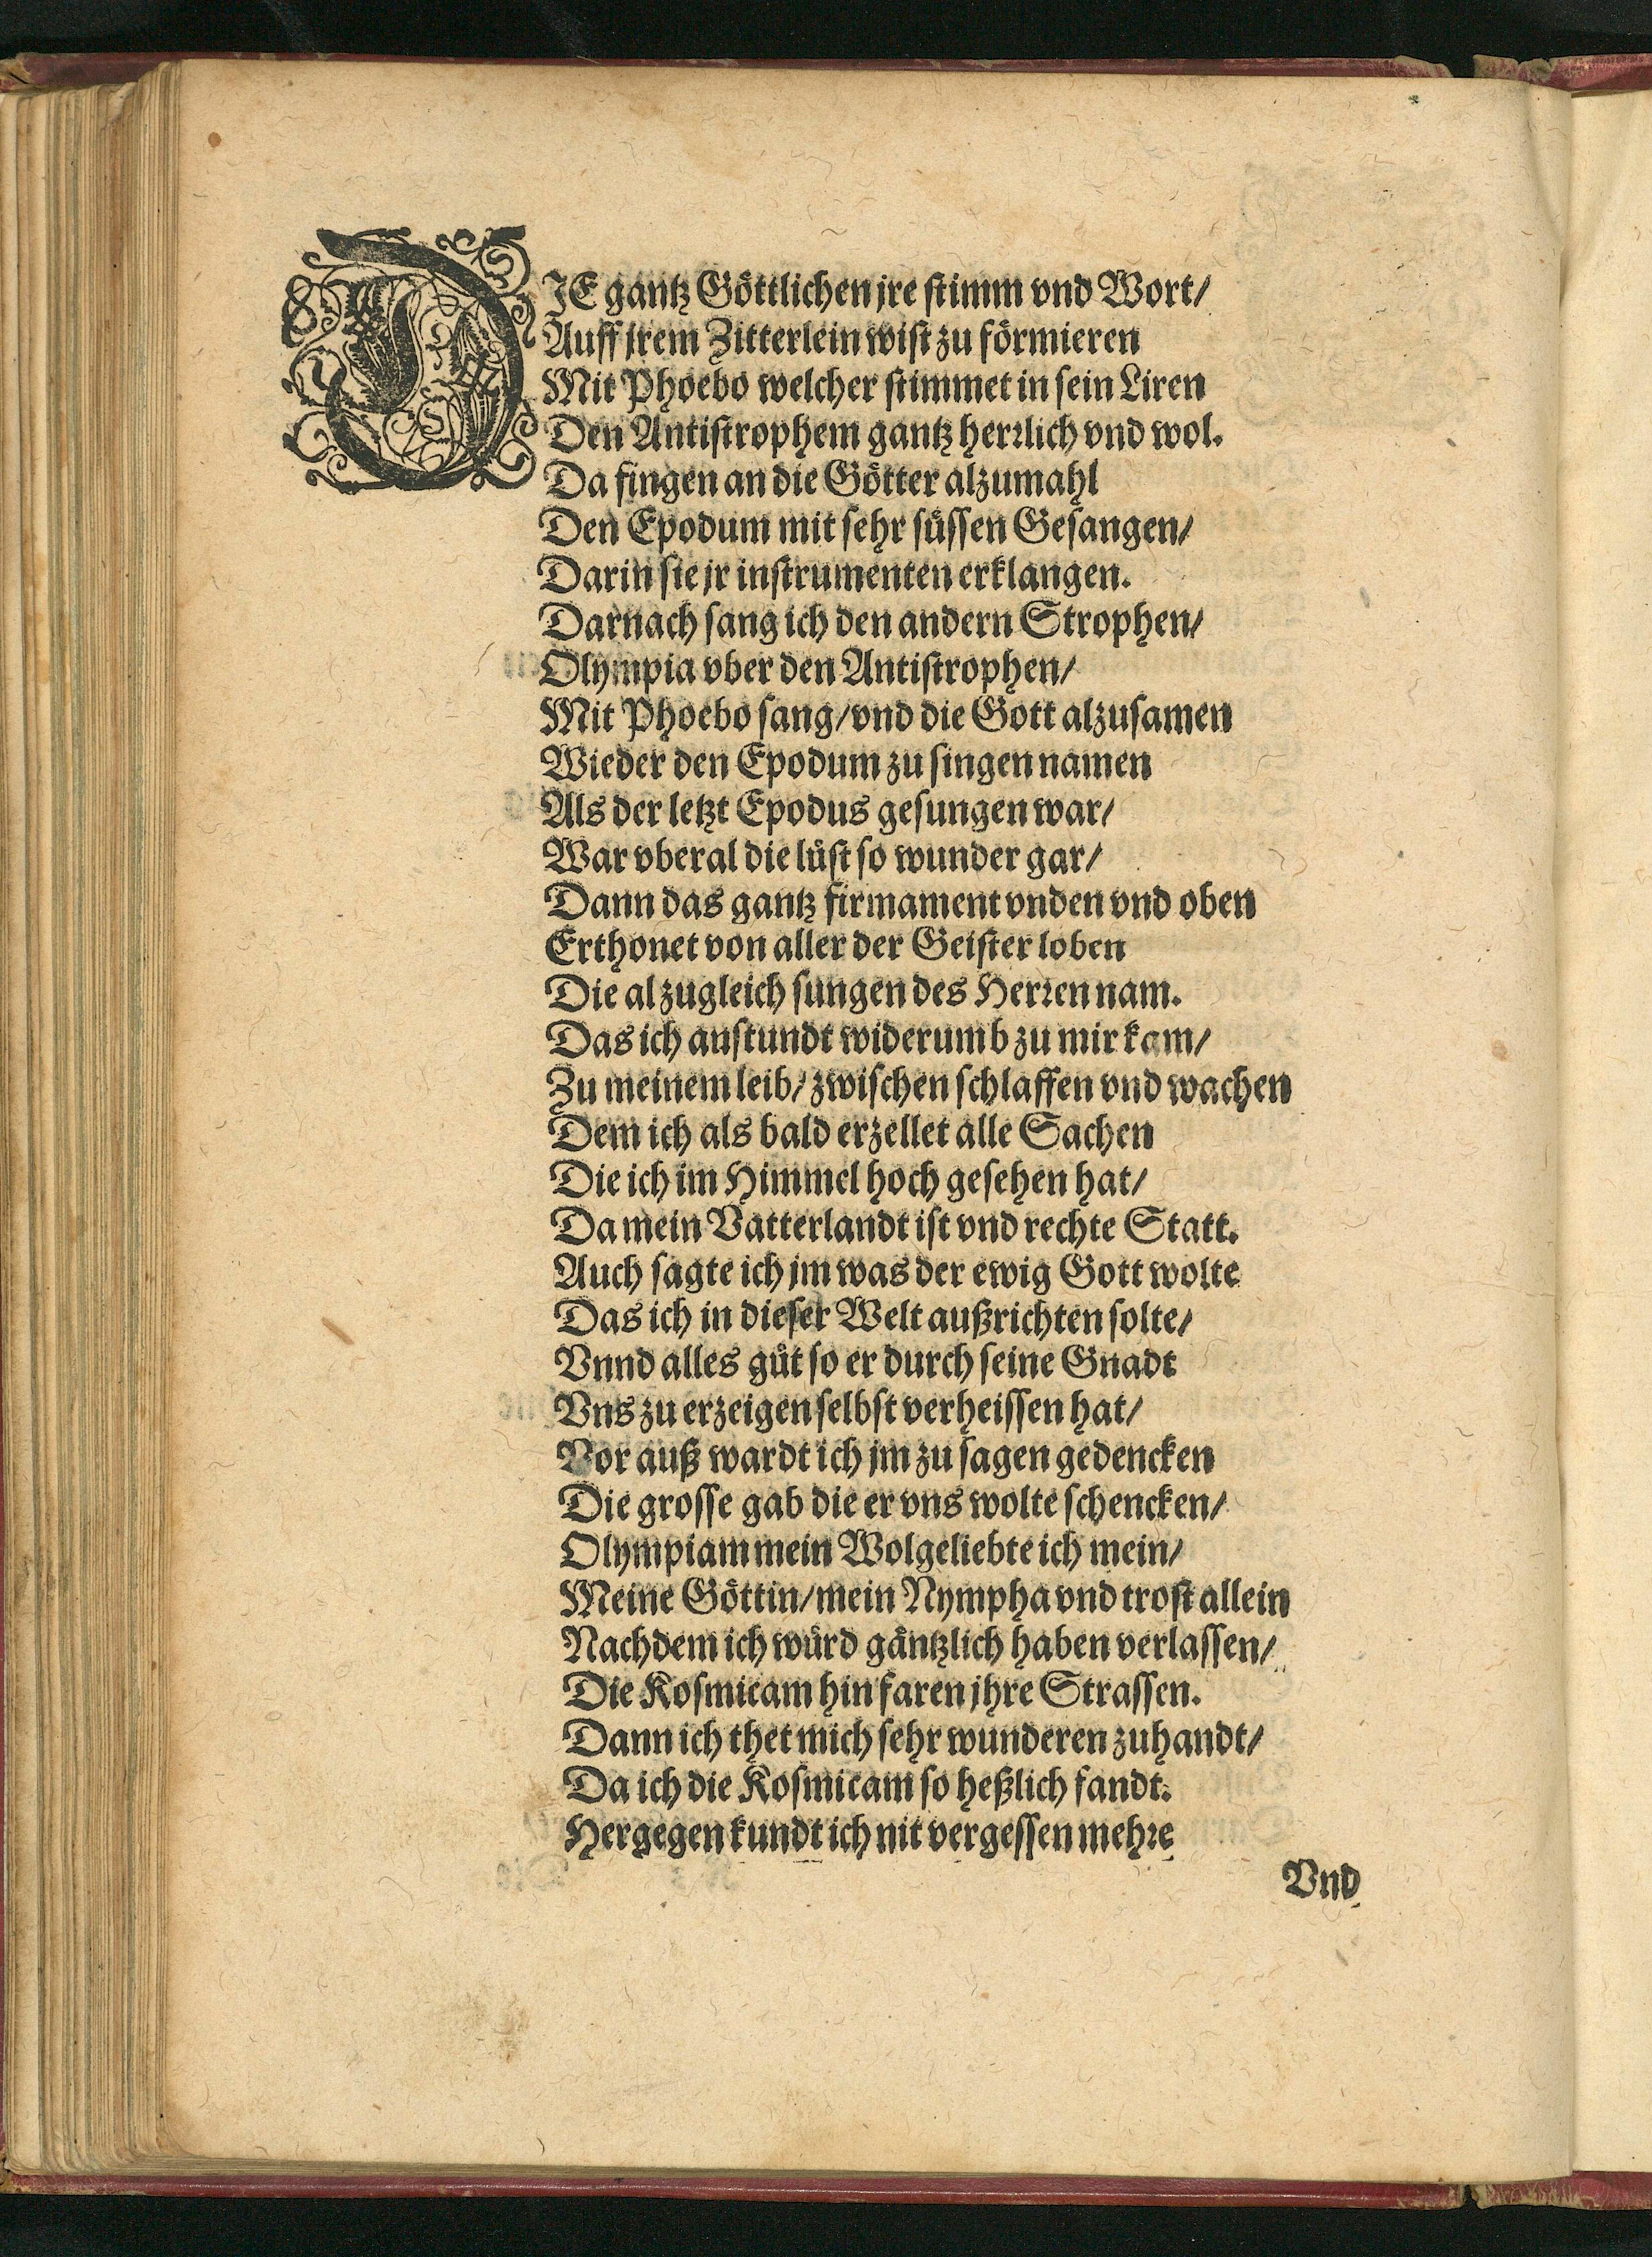 DIE gantz Göttlichen jre stimm vnd Wort/
Auff jrem Zitterlein wist zu förmieren
Mit Phoebo welcher stimmet in sein Liren
Den Antistrophem gantz herꝛlich vnd wol.
Da fingen an die Götter alzumahl
Den Epodum mit sehr süssen Gesangen/
Darin sie jr instrumenten erklangen.
Darnach sang ich den andern Strophen/
Olympia vber den Antistrophen/
Mit Phoebo sang/ vnd die Gott alzusamen
Wieder den Epodum zu singen namen
Als der letzt Epodus gesungen war/
War vberal die lüst so wunder gar/
Dann das gantz firmament vnden vnd oben
Erthonet von aller der Geister loben
Die alzugleich sungen des Herꝛen nam.
Das ich anstundt widerumb zu mir kam/
Zu meinem leib/ zwischen schlaffen vnd wachen
Dem ich als bald erzellet alle Sachen
Die ich im Himmel hoch gesehen hat/
Da mein Vatterlandt ist vnd rechte Statt.
Auch sagte ich jm was der ewig Gott wolte
Das ich in dieser Welt außrichten solte/
Vnnd alles güt so er durch seine Gnadt
Vns zu erzeigen selbst verheissen hat/
Vor auß wardt ich jm zu sagen gedencken
Die grosse gab die er vns wolte schencken/
Olympiam mein Wolgeliebte ich mein/
Meine Göttin/ mein Nympha vnd trost allein
Nachdem ich würd gäntzlich haben verlassen/
Die Kosmicam hin faren jhre Strassen.
Dann ich thet mich sehr wunderen zuhandt/
Da ich die Kosmicam so heßlich fandt.
Hergegen kundt ich nit vergessen mehꝛe
Vnd